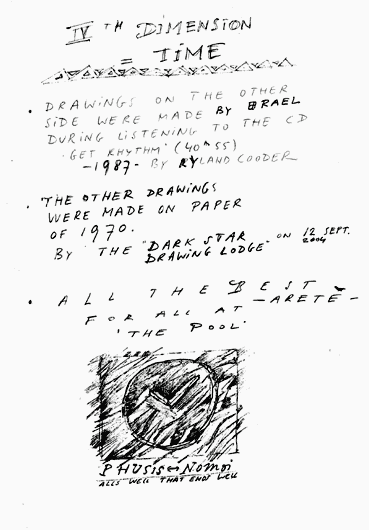 IV TH DIMENSION
= TIME
• DRAWINGS ON THE OTHER
SIDE WERE MADE BY ISRAEL
DURING LISTENING TO THE CD
'GET RHYTHM' (40^55)
-1987- BY RYLAND COODER
• THE OTHER DRAWINGS
WERE MADE ON PAPER
OF 1970.
BY THE "DARK STAR
DRAWING LODGE" ON 12 SEPT.
2004
• ALL THE BEST
FOR ALL AT - ARETÈ -
'THE POOL'
PHUSIS ↔ NOMOI
ALLS WELL THAT ENDS WELL